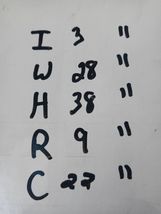 I 3 "
W 28 "
H 38 "
R 9 "
C 22 "